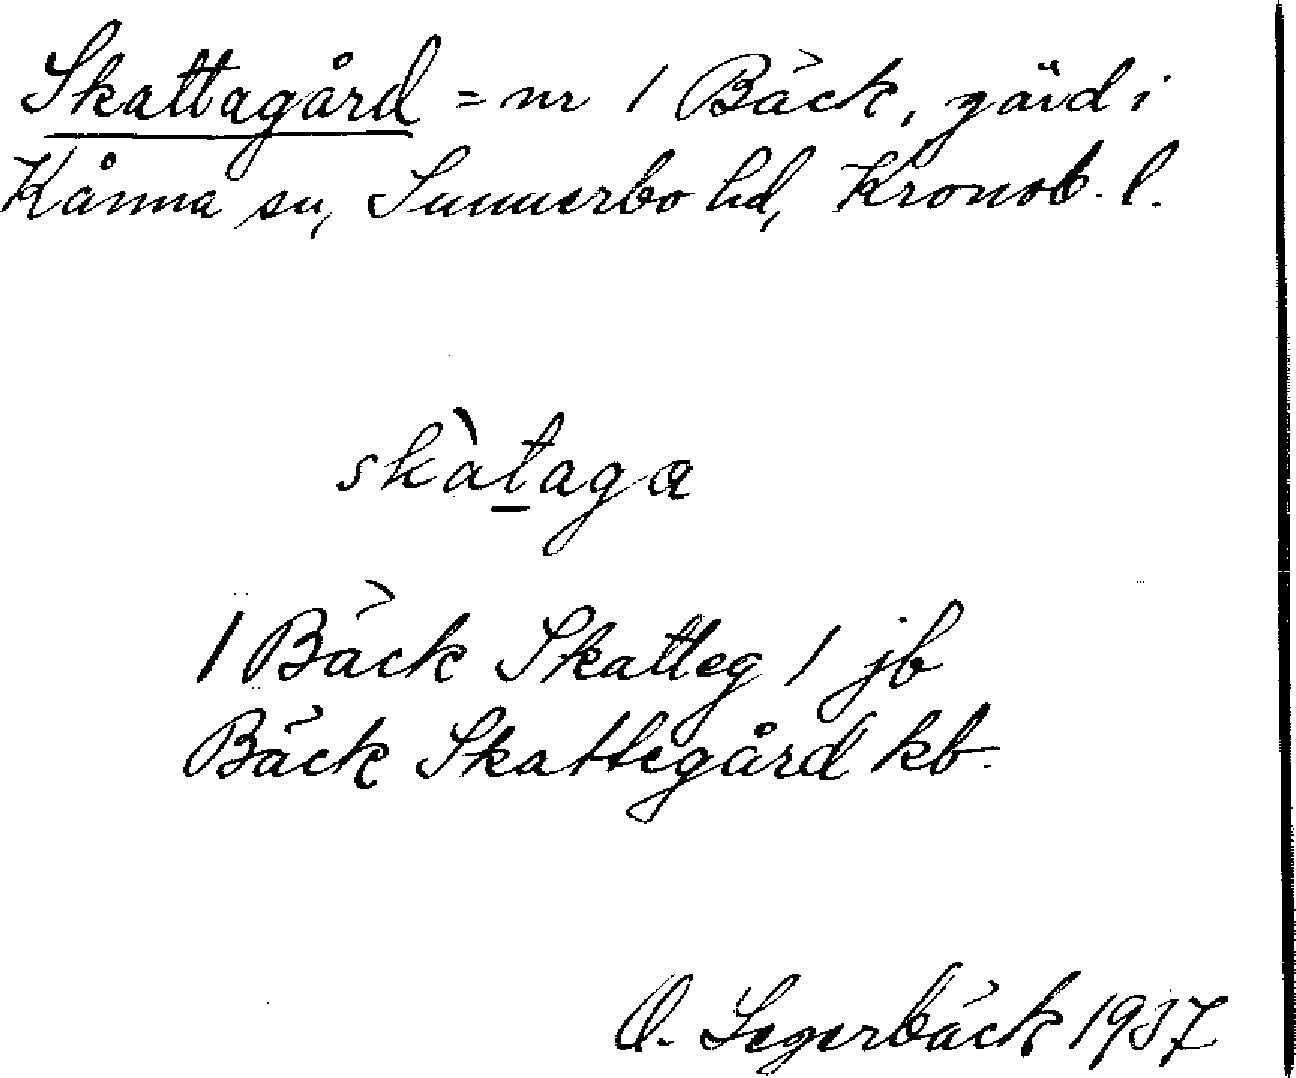 Skattagård = nr 1 Bäck, gård i
Kånna sn, Sunnerbo hd, Kronob. l.
skàtaga
1 Bäck Skatteg 1 jb
Bäck Skattegård kb.
O. Segerbäck 1937